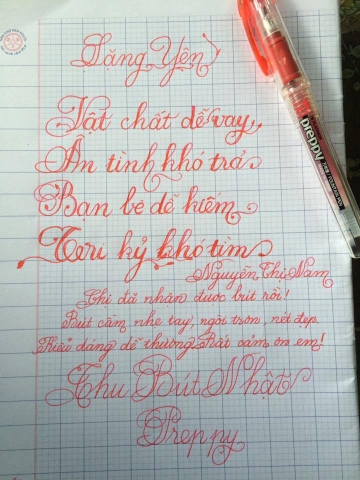 Lặng Yên
Vật chất dễ vay
Ân tình khó trả
Bạn bè dễ kiếm
Tri kỷ khó tìm
Nguyễn Thị Năm
Chị đã nhận được bút rồi!
Bút cầm nhẹ tay, ngòi trơn, nét đẹp
Kiểu dáng dễ thương. Chất cảm ơn em!
Thu Bút Nhật
Preppy
preppy